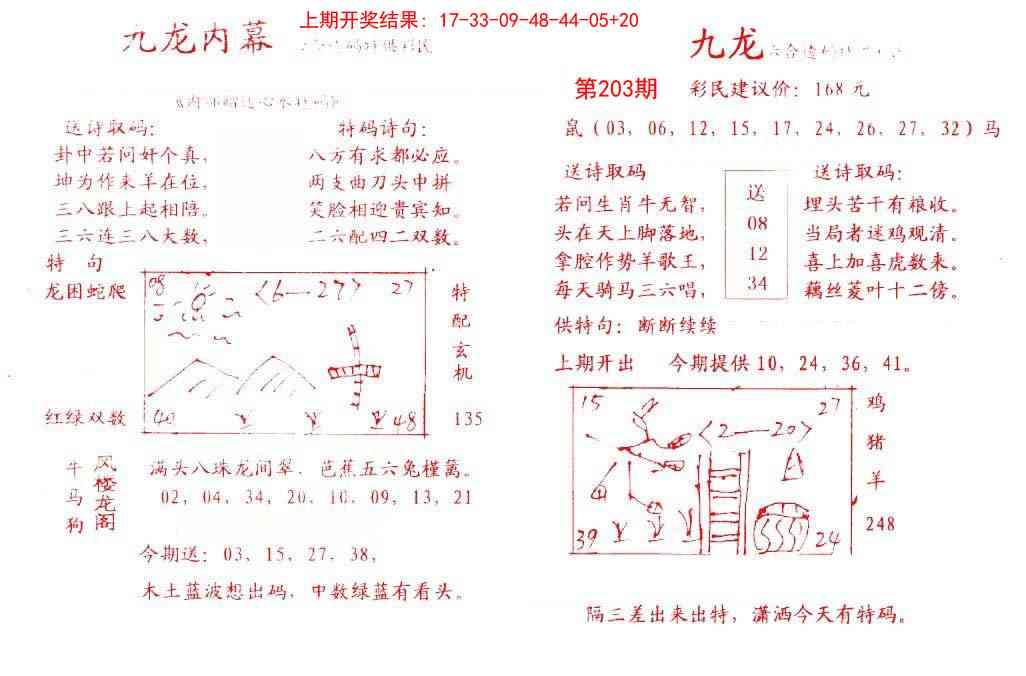 上期开奖结果: 17-33-09-48-44-05+20
九龙内幕
送诗取码:
卦中若问奸个真,
坤为作来羊在位,
三八跟上起相陪。
三六连三八大数,
特码诗句:
八方有求都必应。
两支曲刀头中拼
笑脸相迎贵宾知。
二六配四二双数。
特 句
龙困蛇爬
红绿双数
08
〈6—27〉
27
40
48
特配玄机
135
牛马狗
风楼龙阁
满头八珠龙间翠. 芭蕉五六兔槿篱。
02, 04, 34, 20, 10, 09, 13, 21
今期送: 03, 15, 27, 38,
木土蓝波想出码, 中数绿蓝有看头。
九龙
第203期
彩民建议价: 168 元
鼠 ( 03, 06, 12, 15, 17, 24, 26, 27, 32 ) 马
送诗取码
若问生肖牛无智,
头在天上脚落地,
拿腔作势羊歌王,
每天骑马三六唱,
送
08
12
34
送诗取码:
埋头苦干有粮收。
当局者迷鸡观清。
喜上加喜虎数来。
藕丝菱叶十二傍。
供特句: 断断续续
上期开出 今期提供 10, 24, 36, 41。
15
27
〈2—20〉
39
24
鸡
猪
羊
248
隔三差出来出特, 潇洒今天有特码。